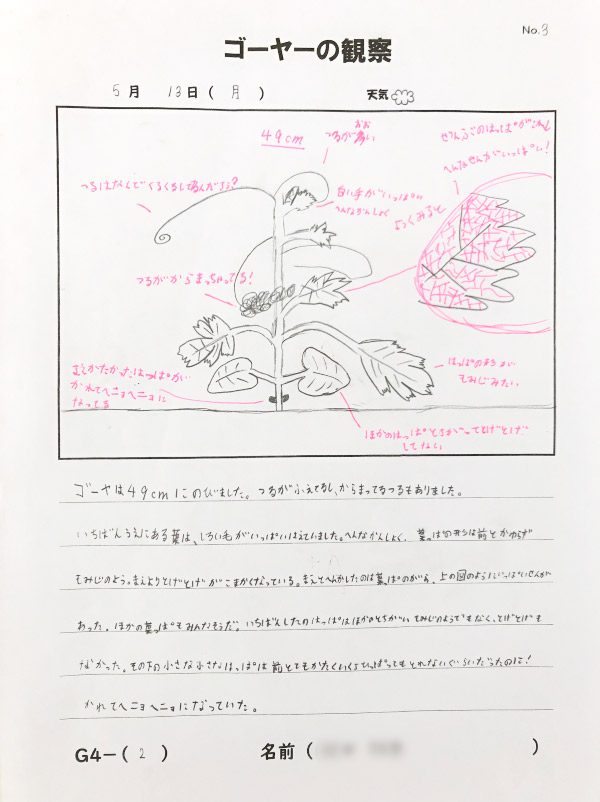 No.3
ゴーヤーの観察
5月 13日(月) 天気
49cm
つるが多い
おお
ぜんぶのはっぱがこれ
へんなせんがいっぱい!
つるはなんでぐるぐるしてるんだろ?
白い毛がいっぱい
へんなかんしょく
よくみると
つるがからまっちゃってる!
はっぱの形が
もみじみたい。
むかしかたかったはっぱが
かれてヘニョヘニョに
なってる
ほかのはっぱとちがってとげとげ
してない
ゴーヤは49cmにのびました。つるがふえてるし、からまってるつるもありました。
いちばんうえにある葉は、しろい毛がいっぱいはえていました。へんなかんしょく。葉っぱの形は前とかわらず
もみじのよう。まえよりとげとげがこまかくなっている。まえとへんかしたのは葉っぱのがら。上の図のようにいっぱいせんが
あった。ほかの葉っぱもみんなそうだ。いちばんしたのはっぱはほかのとちがいもみじのようでもなく、とげとげも
なかった。その下の小さな小さなはっぱは前とてもかたくいくらひっぱってもとれないぐらいだったのに!
かれてヘニョヘニョになっていた。
G4-(2) 名前( )